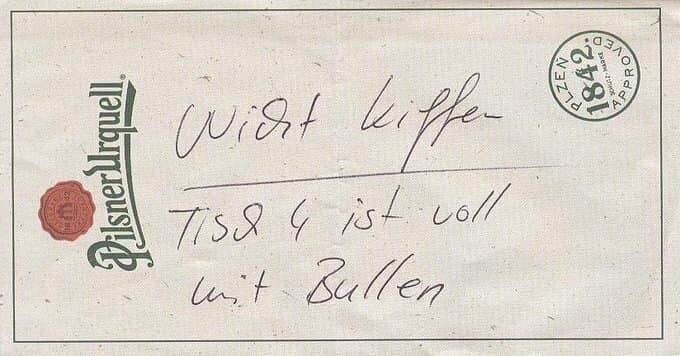 Nicht kiffen
Tisch 4 ist voll
mit Bullen
Pilsner Urquell
PLZEŇ
1842
APPROVED